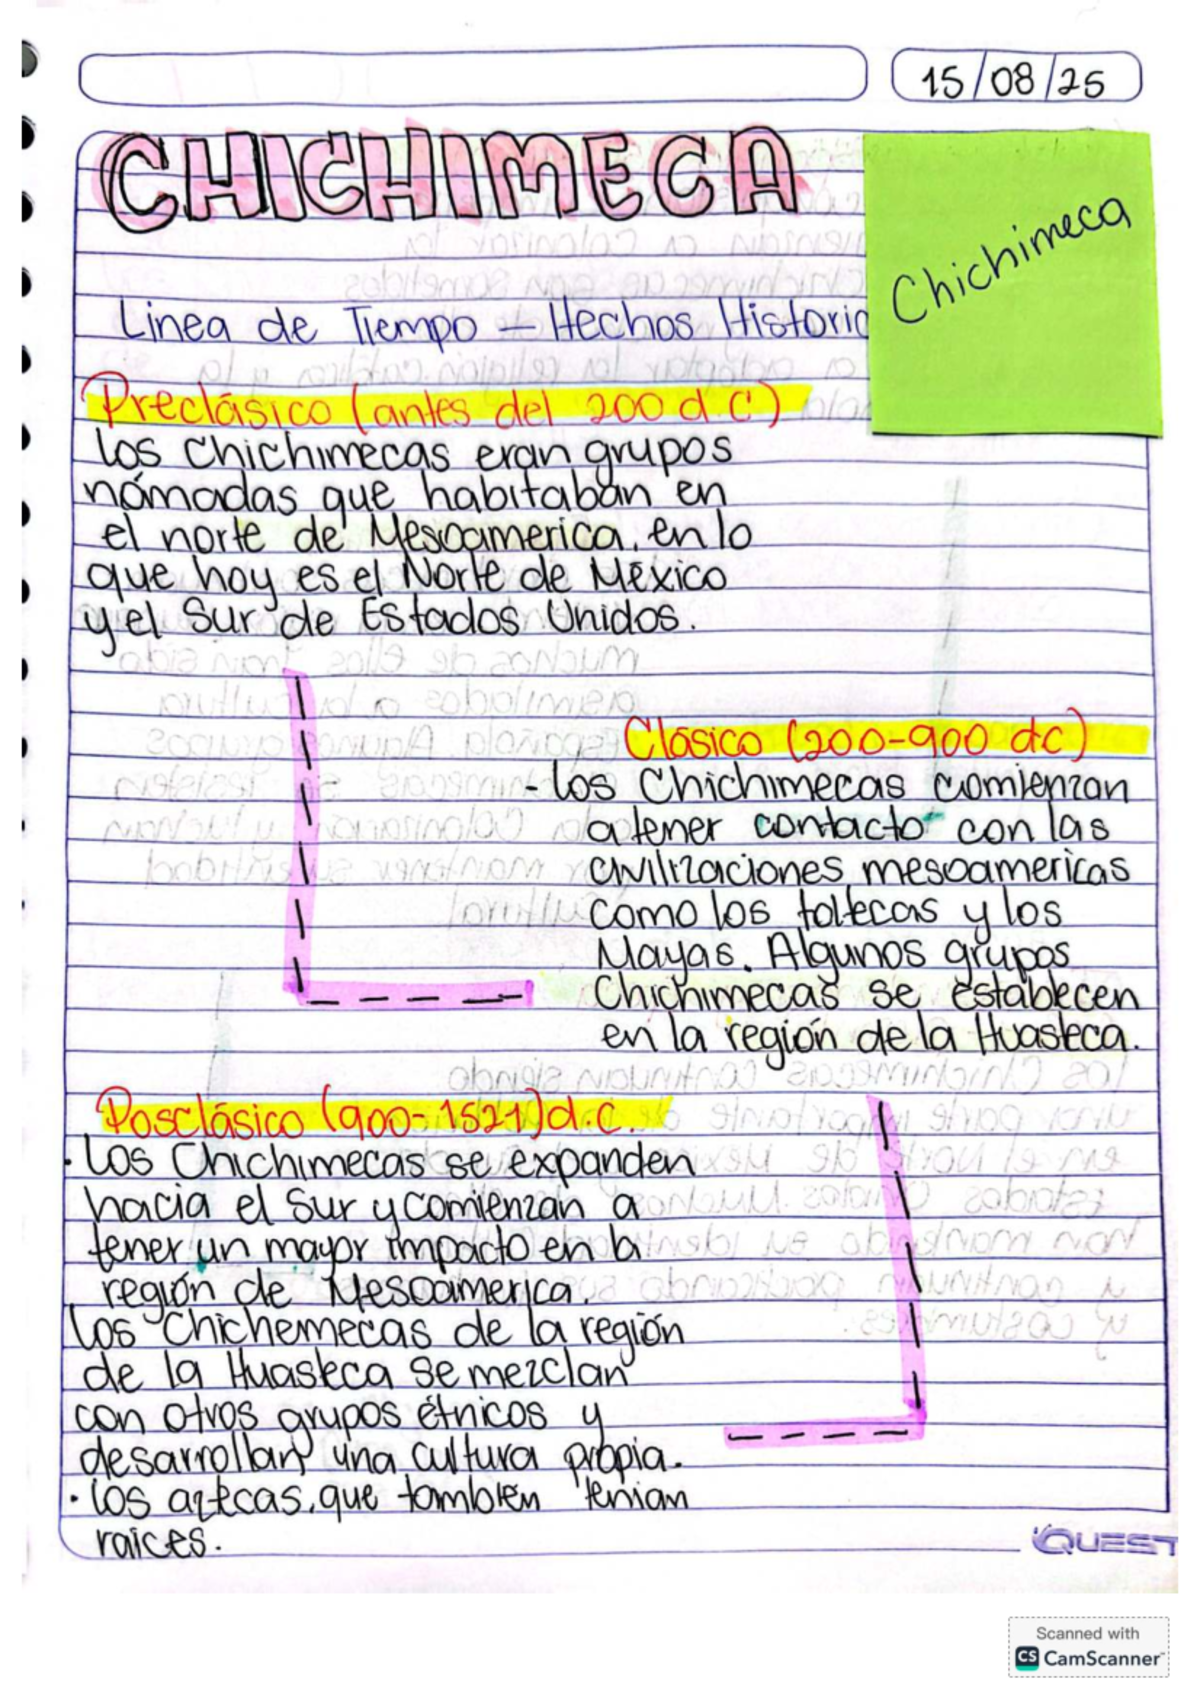 15/08/25
CHICHIMECA
Chichimeca
Linea de Tiempo - Hechos Historic
Preclásico (antes del 200 d C)
Los Chichimecas eran grupos
nómadas que habitaban en
el norte de Mesoamerica, en lo
que hoy es el Norte de México
y el Sur de Estados Unidos.
Clásico (200-900 dc)
- los Chichimecas comienzan
a tener contacto con las
civilizaciones mesoamericas
como los toltecas y los
Mayas. Algunos grupos
Chichimecas se establecen
en la región de la Huasteca.
Posclásico (900-1521) d.c.
· Los Chichimecas se expanden
hacia el Sur y comienzan a
tener un mayor impacto en la
región de Mesoamerica.
Los Chichemecas de la región
de la Huasteca se mezclan
con otros grupos étnicos y
desarrollan una cultura propia.
· los aztecas, que tambien tenian
raices.
QUEST
Scanned with
CS CamScanner